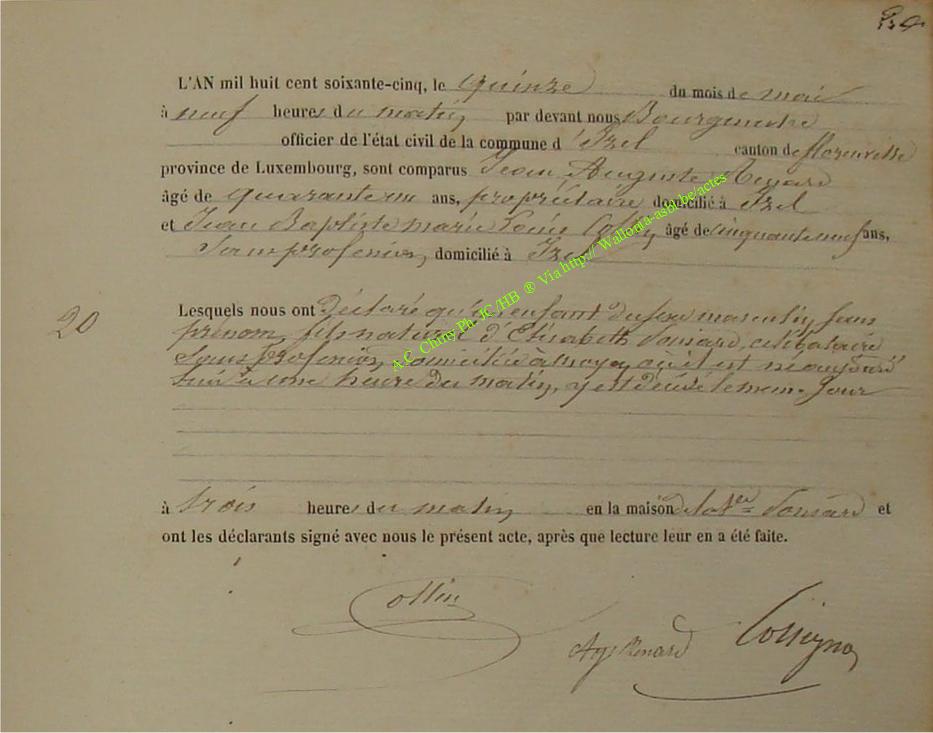 L'AN mil huit cent soixante-cinq, le quinze du mois de mai
à neuf heures du matin, par devant nous Bourgmestre
officier de l'état civil de la commune d'Izel canton de florenville
province de Luxembourg, sont comparus Jean Auguste Renard
âgé de quarante un ans, propriétaire domicilié à Izel
et Jean Baptiste Marie Louis Collin, âgé de cinquante neuf ans,
Sans profession, domicilié à Izel
20
Lesquels nous ont déclaré qu'un enfant du sexe masculin, sans
prénom, fils naturel d'Elisabeth ponsard, célibataire
sans profession, domiciliée à moyen, où il est né aujourd
huit à une heure du matin, y est décédé le même jour
à trois heures du matin en la maison de la de ponsard et
ont les déclarants signé avec nous le présent acte, après que lecture leur en a été faite.
Collin
Ag. Renard
A.C. Chiny Ph. JC/HB ® Via http:// Wallonia-asbl.be/actes